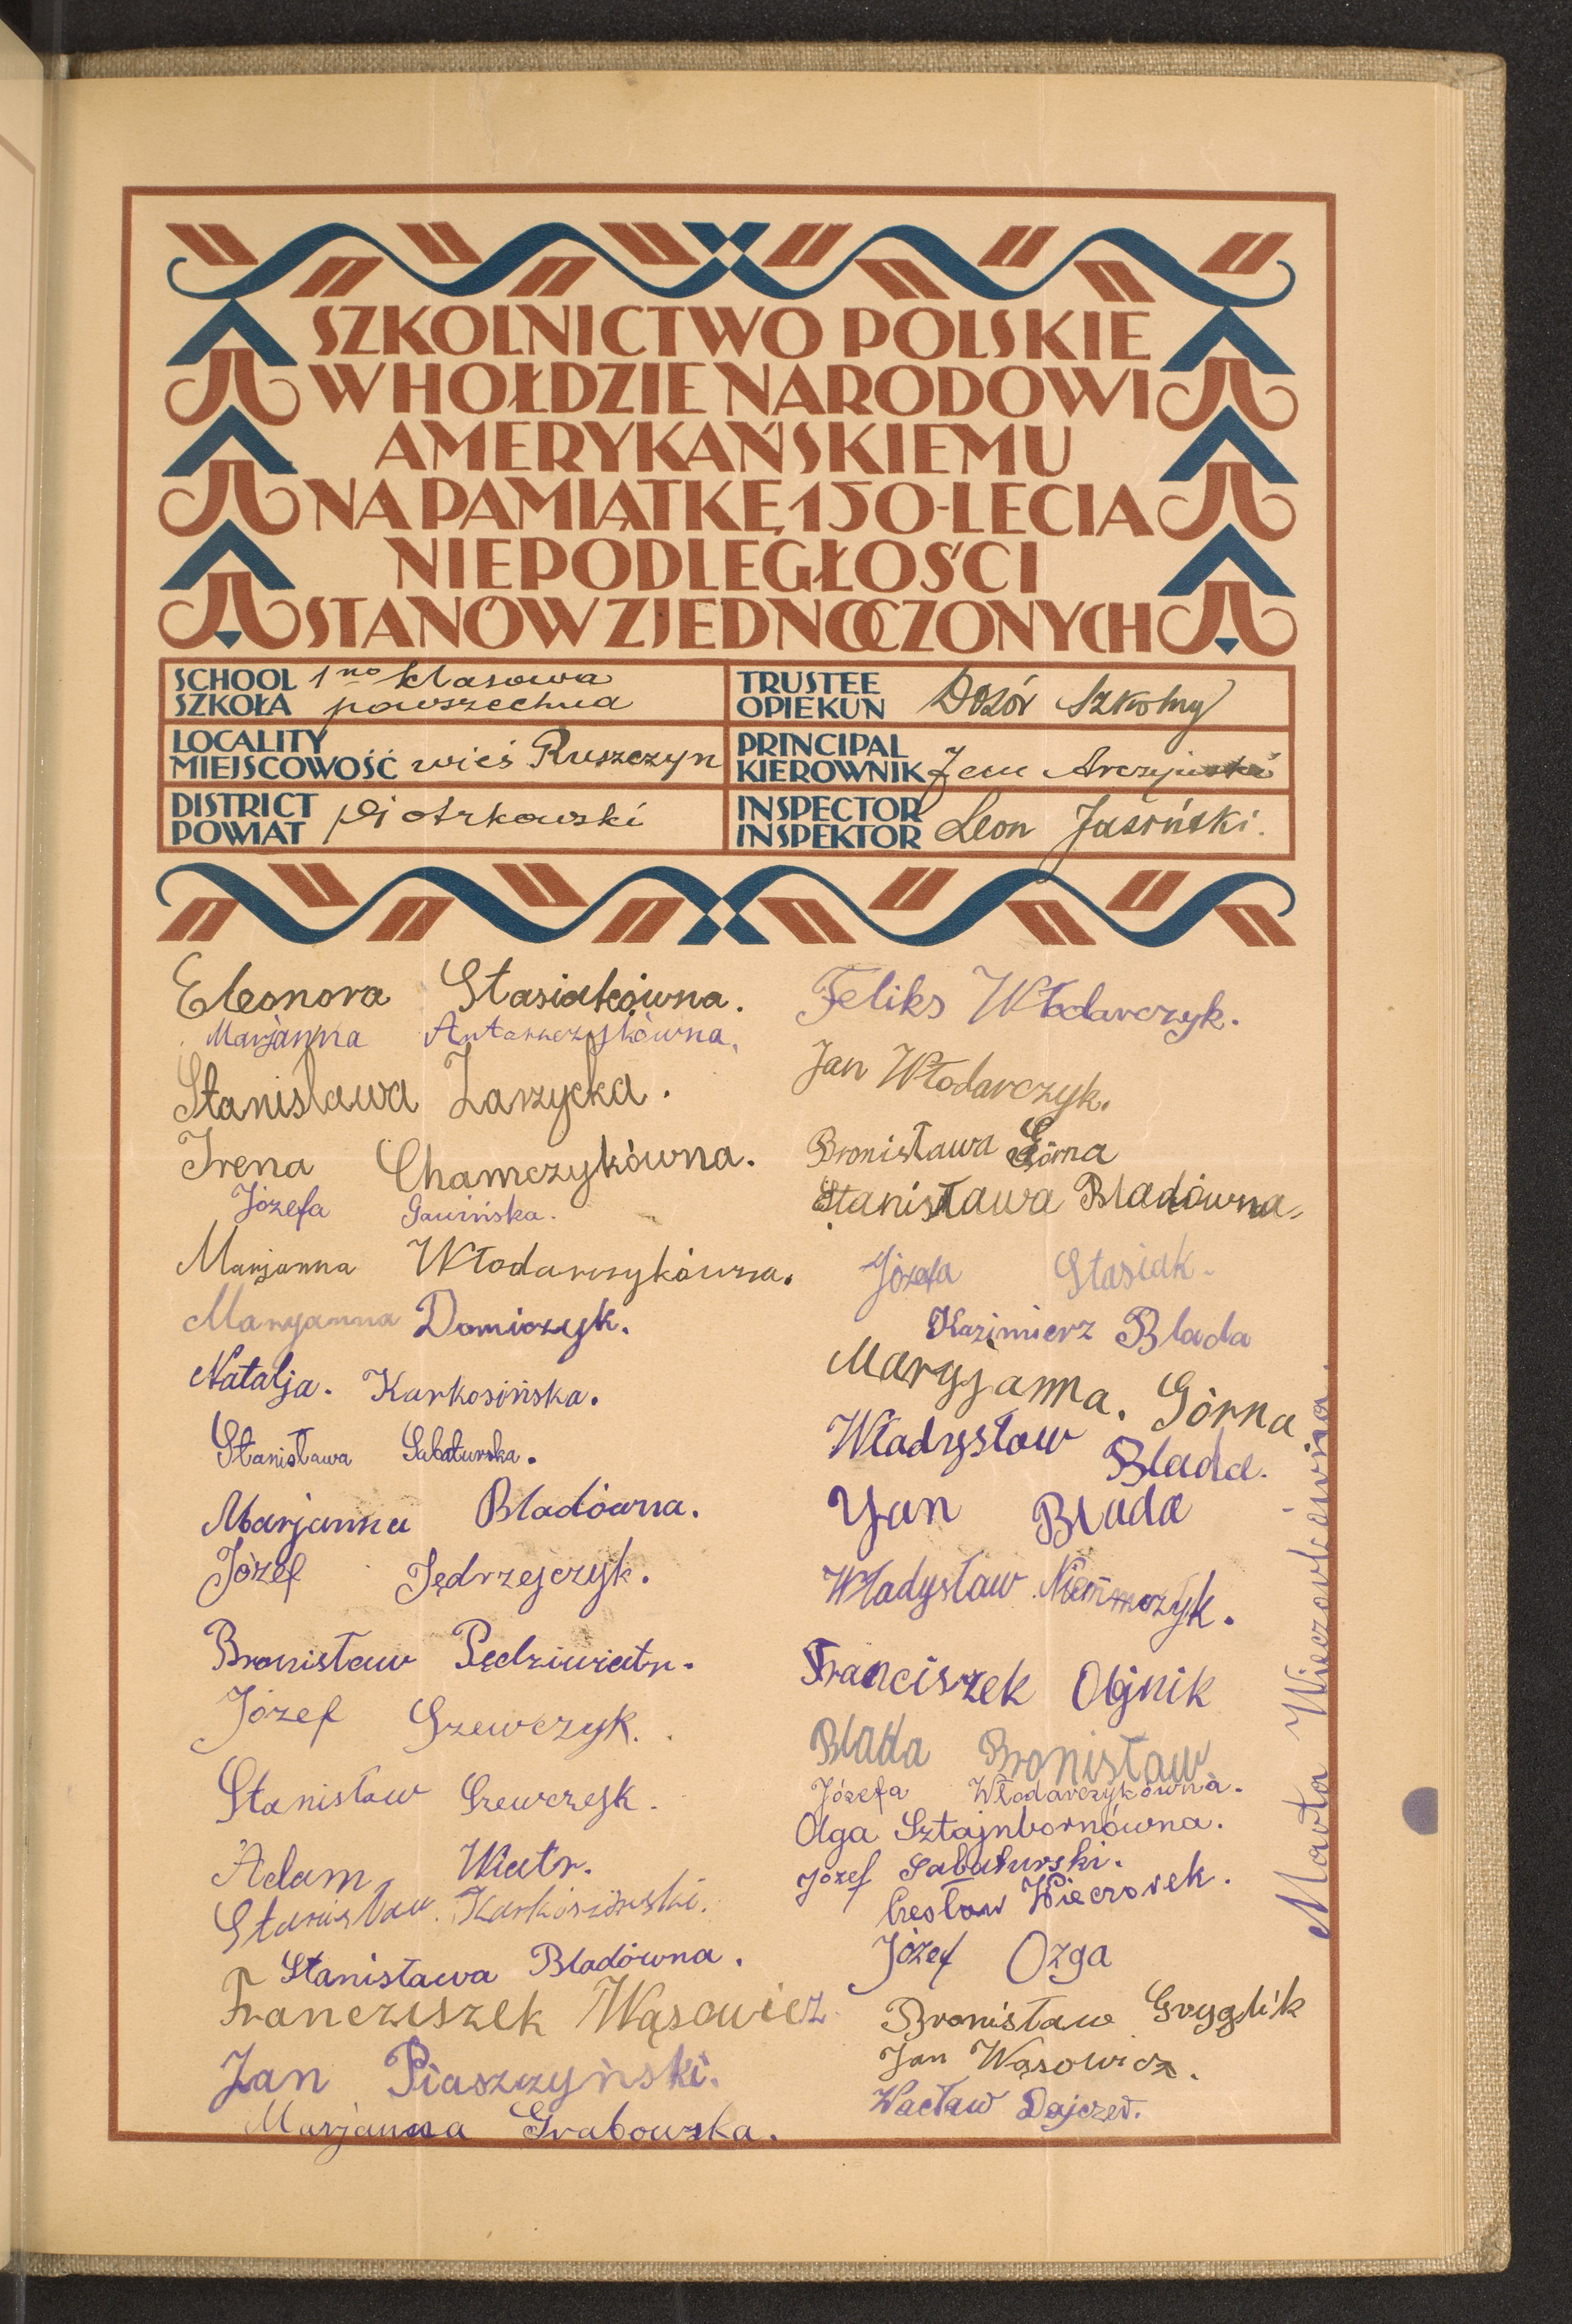 SZKOLNICTWO POLSKIE
W HOŁDZIE NARODOWI
AMERYKAŃSKIEMU
NA PAMIĄTKĘ 150-LECIA
NIEPODLEGŁOŚCI
STANÓW ZJEDNOCZONYCH
SCHOOL
SZKOŁA
1no klasowa
powszechna
LOCALITY
MIEJSCOWOŚĆ
wieś Ruszczyn
DISTRICT
POWIAT
piotrkowski
TRUSTEE
OPIEKUN
Dozór Szkolny
PRINCIPAL
KIEROWNIK
Jan
INSPECTOR
INSPEKTOR
Leon Jasiński.
Eleonora Stasiakówna.
Marjanna Antonczykówna.
Stanisława Zarzycka.
Irena Chamczykówna.
Józefa Gawińska.
Marjanna Włodarczykówna.
Maryanna Domiczyk.
Natalja. Karkosińska.
Stanisława Sabaturska.
Marjanna Bladówna.
Józef Jędrzejczyk.
Bronisław Pędziwiatr.
Józef Szewczyk.
Stanisław Szewczyk.
Adam Wiatr.
Stanisław. Karkosiński.
Stanisława Bladówna.
Francziszek Wąsowicz
Jan Piaszczyński.
Marjanna Grabowska.
Feliks Włodarczyk.
Jan Włodarczyk.
Bronisława Górna
Stanisława Bladówna.
Józefa Stasiak.
Kazimierz Blada
Maryjanna. Górna.
Władysław Blada.
Yan Blada
Władysław
Franciszek Olijnik
Blada Bronisław
Józefa Włodarczykówna.
Olga Sztajnbornówna.
Józef Sabaturski.
Czesław Wieczorek.
Józef Ozga
Bronisław Gryglik
Jan Wąsowicz.
Wacław Dajczer.
Marta Wieczorkówna.